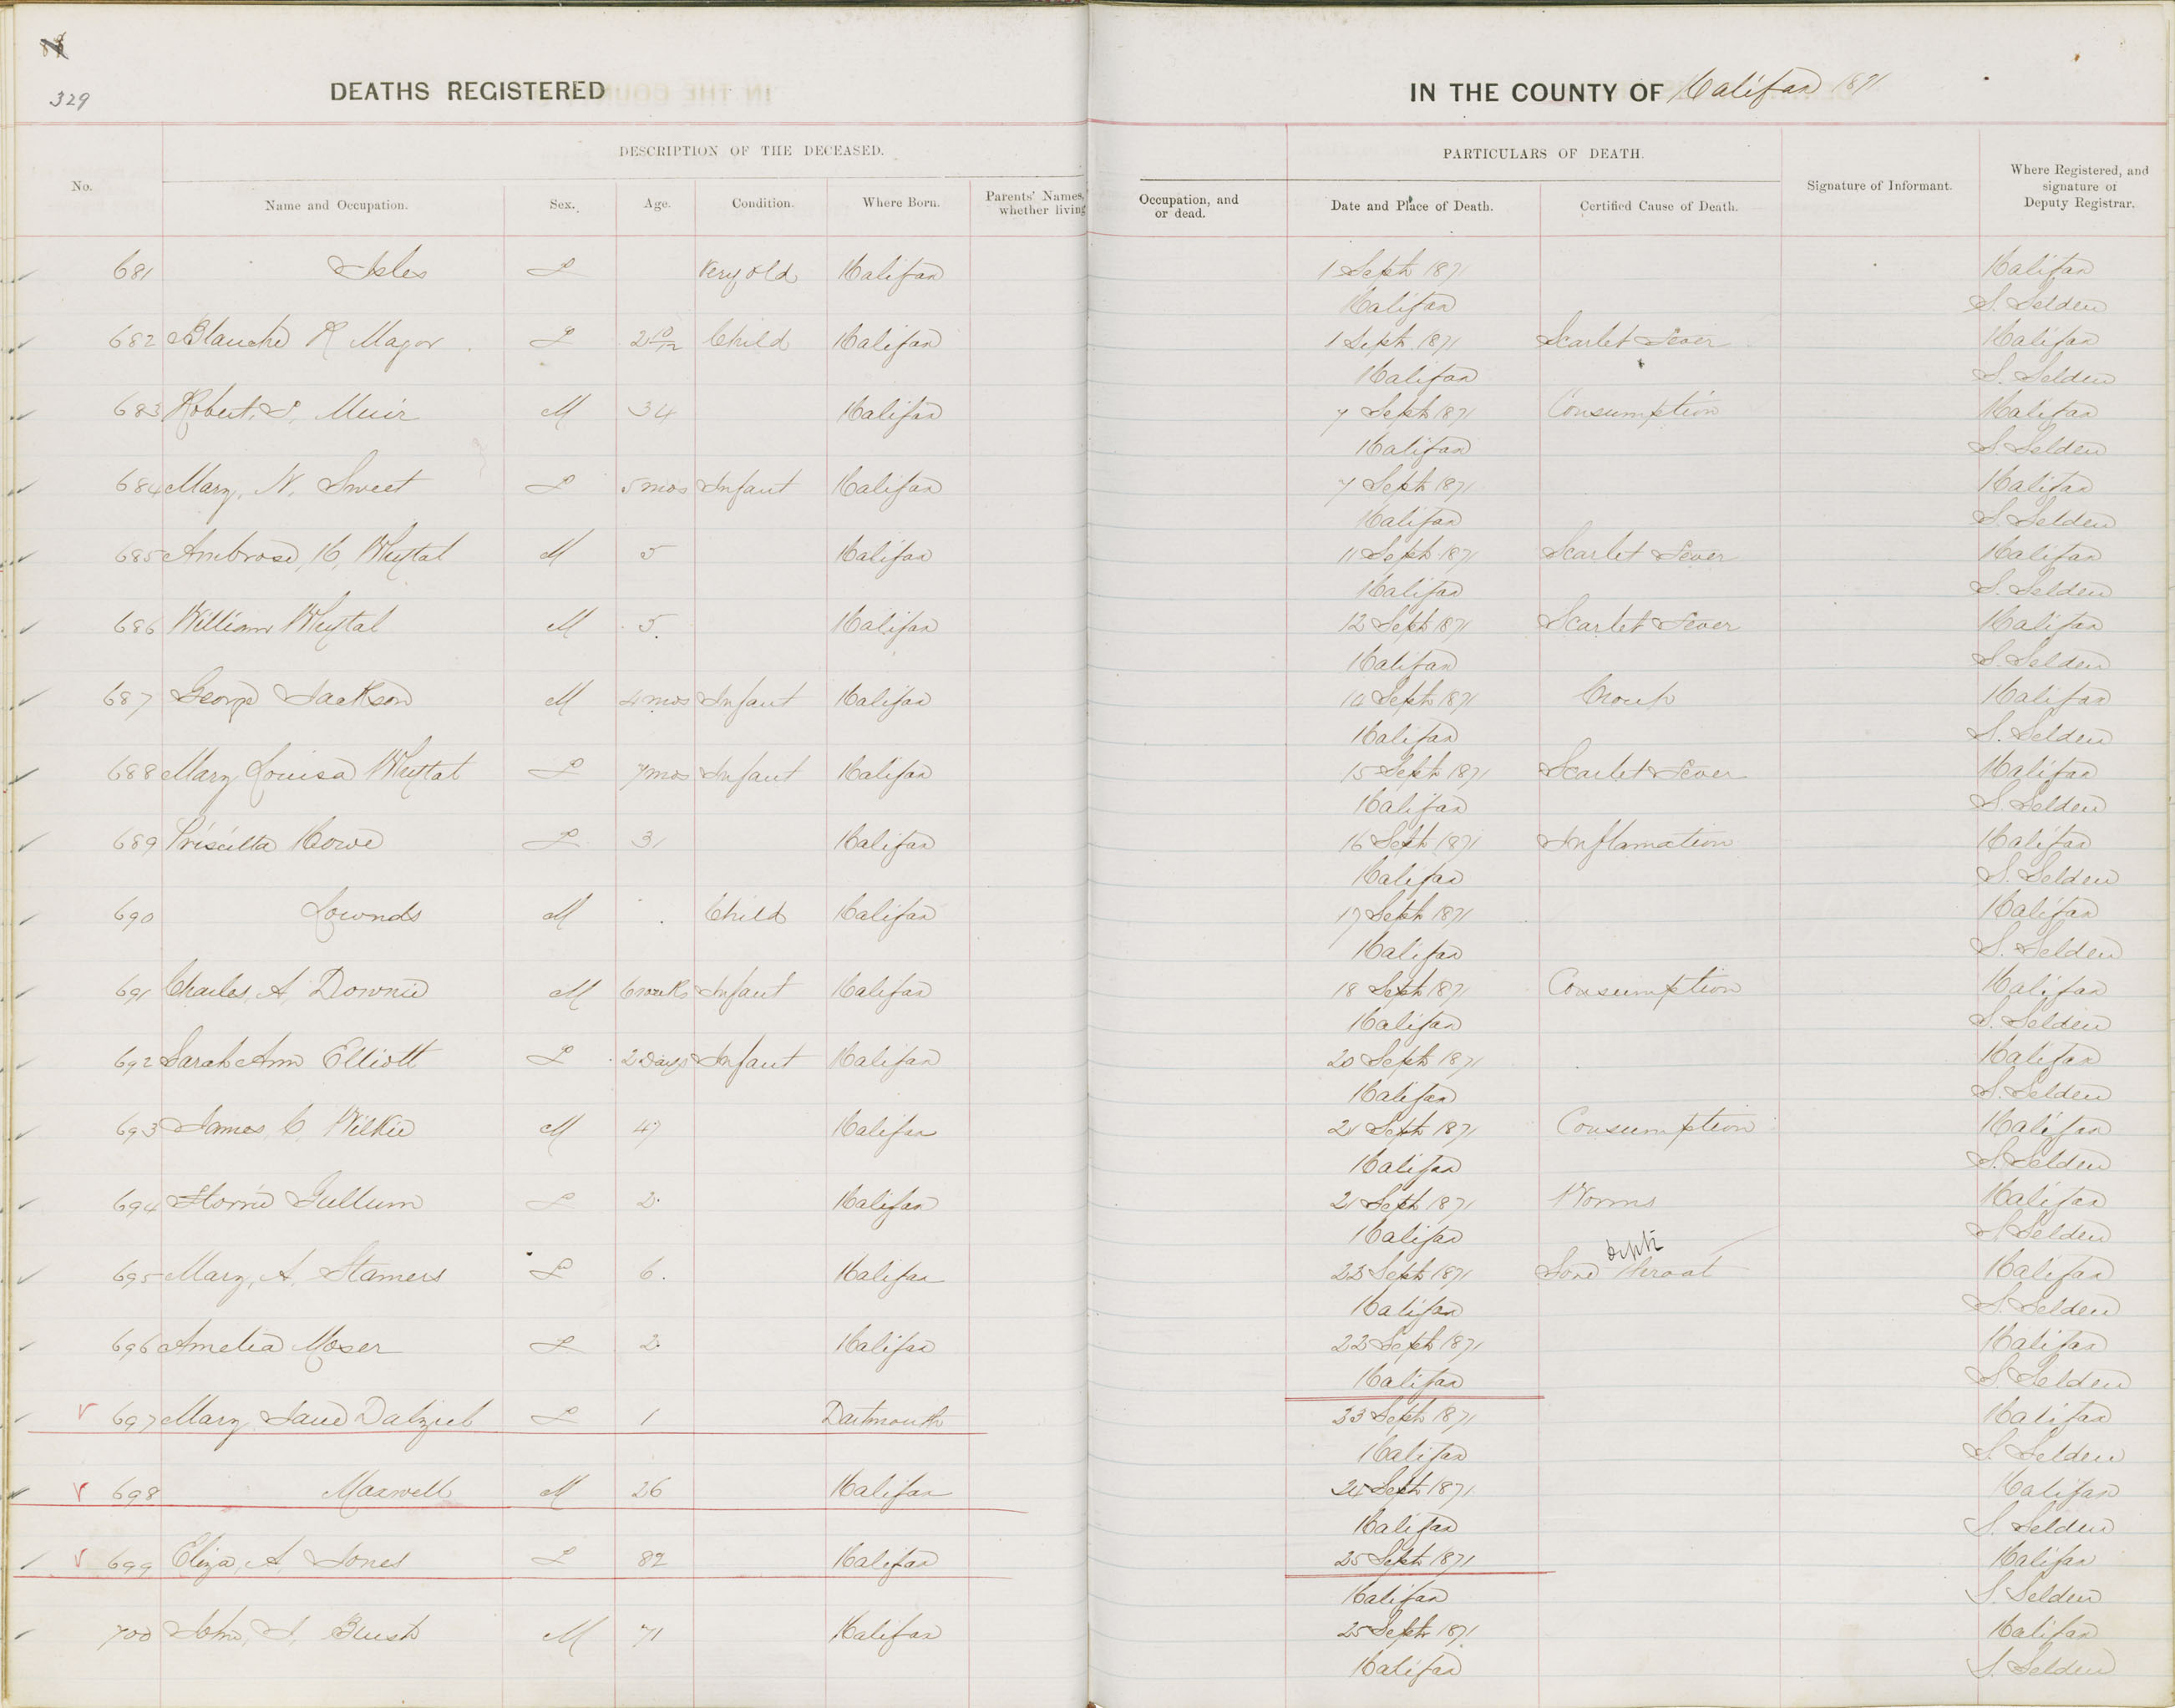 329
DEATHS REGISTERED IN THE COUNTY OF Halifax 1871
DESCRIPTION OF THE DECEASED. PARTICULARS OF DEATH.
No. Name and Occupation. Sex. Age. Condition. Where Born. Parents' Names, whether living Occupation, and or dead. Date and Place of Death. Certified Cause of Death. Signature of Informant. Where Registered, and signature of Deputy Registrar.
681 Isles F Very old Halifax 1 Sept 1871 Halifax
Halifax S. Selden
682 Blanche R Magor F 2 10/12 Child Halifax 1 Sept. 1871 Scarlet Fever Halifax
Halifax S. Selden
683 Robert. S. Muir M 34 Halifax 7 Sept 1871 Consumption Halifax
Halifax S. Selden
684 Mary, N. Sweet F 5 mos Infant Halifax 7 Sept 1871 Halifax
Halifax S. Selden
685 Ambrose, H, Whytal M 5 Halifax 11 Sept 1871 Scarlet Fever Halifax
Halifax S. Selden
686 William Whytal M 5. Halifax 12 Sept 1871 Scarlet Fever Halifax
Halifax S. Selden
687 George Jackson M 4 mos Infant Halifax Sept 1871 Croup Halifax
Halifax S. Selden
688 Mary Louisa Whytal F 7 mos Infant Halifax 15 Sept 1871 Scarlet Fever Halifax
Halifax S. Selden
689 Priscilla Howe F 31 Halifax 16 Sept 1871 Inflamation Halifax
Halifax S. Selden
690 Lownds M Child Halifax 17 Sept 1871 Halifax
Halifax S. Selden
691 Charles, A, Downie M 6 weeks Infant Halifax 18 Sept 1871 Consumption Halifax
Halifax S. Selden
692 Sarah Ann Elliott F 2 Days Infant Halifax 20 Sept 1871 Halifax
Halifax S. Selden
693 James, C, Wilkie M 47 Halifax 21 Sept 1871 Consumption Halifax
Halifax S. Selden
694 Florrie Gullum F 2. Halifax 21 Sept 1871 Worms Halifax
Halifax S. Selden
diph
695 Mary, A, Stamers F 6. Halifax 22 Sept 1871 Sore throat Halifax
Halifax S. Selden
696 Amelia Moser F 2. Halifax 22 Sept 1871 Halifax
Halifax S. Selden
697 Mary Jane Dalziel F 1 Dartmouth 23 Sept 1871 Halifax
Halifax S. Selden
698 Maxwell M 26 Halifax 24 Sept 1871 Halifax
Halifax S. Selden
699 Eliza, A, Jones F 82 Halifax 25 Sept 1871 Halifax
Halifax S. Selden
700 John, J, M 71 Halifax 25 Sept 1871 Halifax
Halifax S. Selden